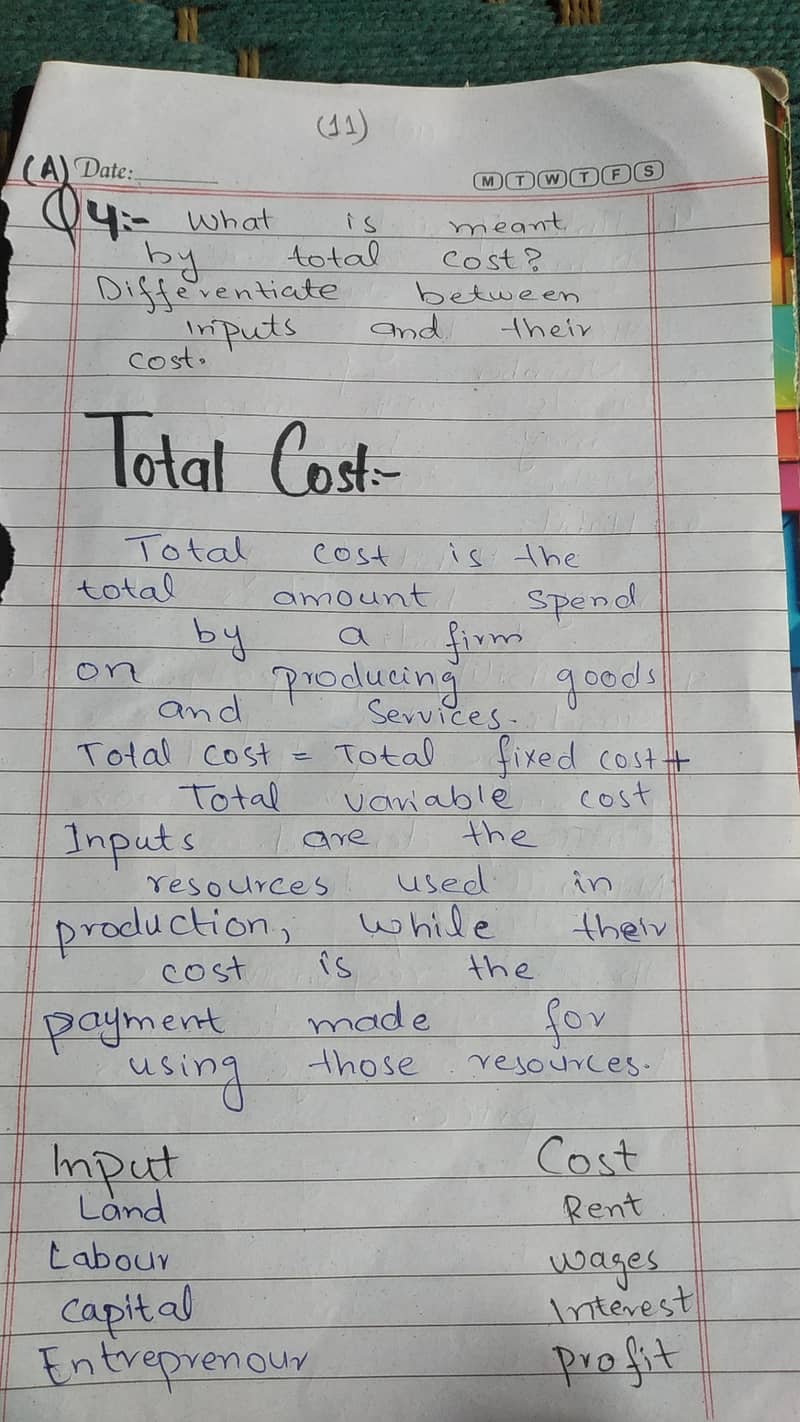 (11)
(A) Date: M T W T F S
Q4:- What is meant
by total cost?
Differentiate between
inputs and their
cost.
Total Cost:-
Total cost is the
total amount spend
by a firm
on producing goods
and services.
Total cost = Total fixed cost +
Total variable cost
Inputs are the
resources used in
production, while their
cost is the
payment made for
using those resources.
Input Cost
Land Rent
Labour wages
Capital Interest
Entreprenour profit